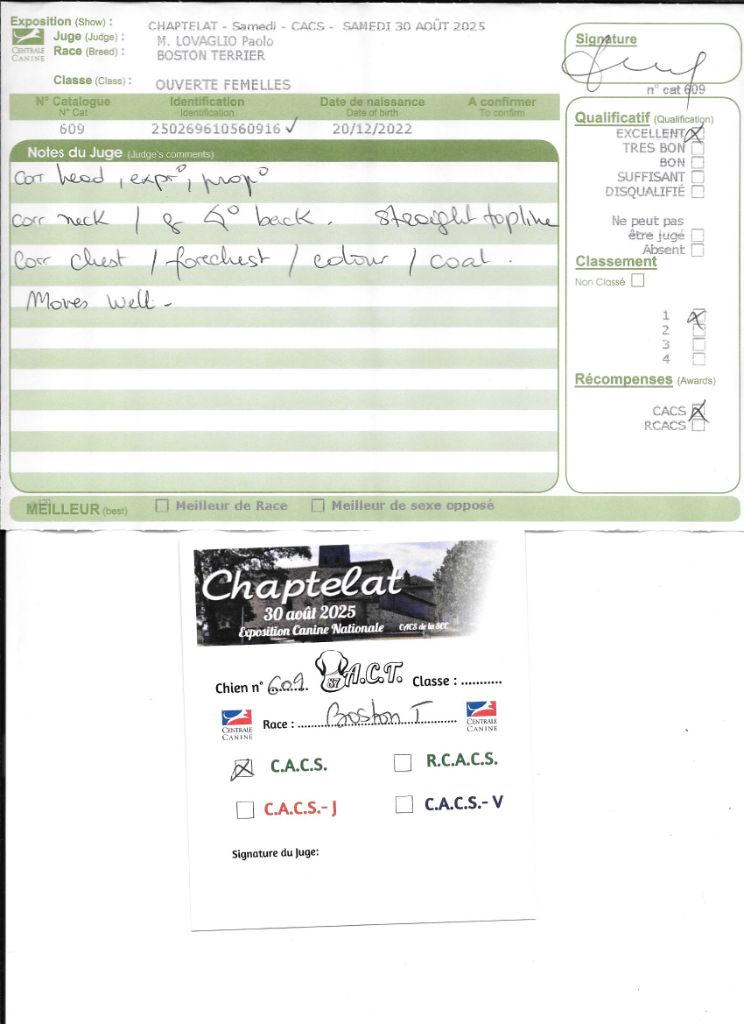 Exposition (Show) : CHAPTELAT - Samedi - CACS - SAMEDI 30 AOÛT 2025
Juge (Judge) : M. LOVAGLIO Paolo
Race (Breed) : BOSTON TERRIER
CENTRALE CANINE
Classe (Class) : OUVERTE FEMELLES
N° Catalogue Identification Date de naissance A confirmer
N° Cat Identification Date of birth To confirm
609 250269610560916 ✓ 20/12/2022
Notes du Juge (Judge's comments)
Corr head, expr°, prop°
Corr neck / & back. straight topline
Corr chest / forechest / colour / coat.
Moves well -
MEILLEUR (best) Meilleur de Race Meilleur de sexe opposé
Signature
n° cat 609
Qualificatif (Qualification)
EXCELLENT
TRES BON
BON
SUFFISANT
DISQUALIFIÉ
Ne peut pas
être jugé
Absent
Classement
Non Classé
1
2
3
4
Récompenses (Awards)
CACS
RCACS
Chaptelat
30 août 2025
Exposition Canine Nationale CACS de la SCC
Chien n° 609 87 A.C.T. Classe : ...........
CENTRALE CANINE
Race : Boston T
CENTRALE CANINE
C.A.C.S. R.C.A.C.S.
C.A.C.S.- J C.A.C.S.- V
Signature du Juge: